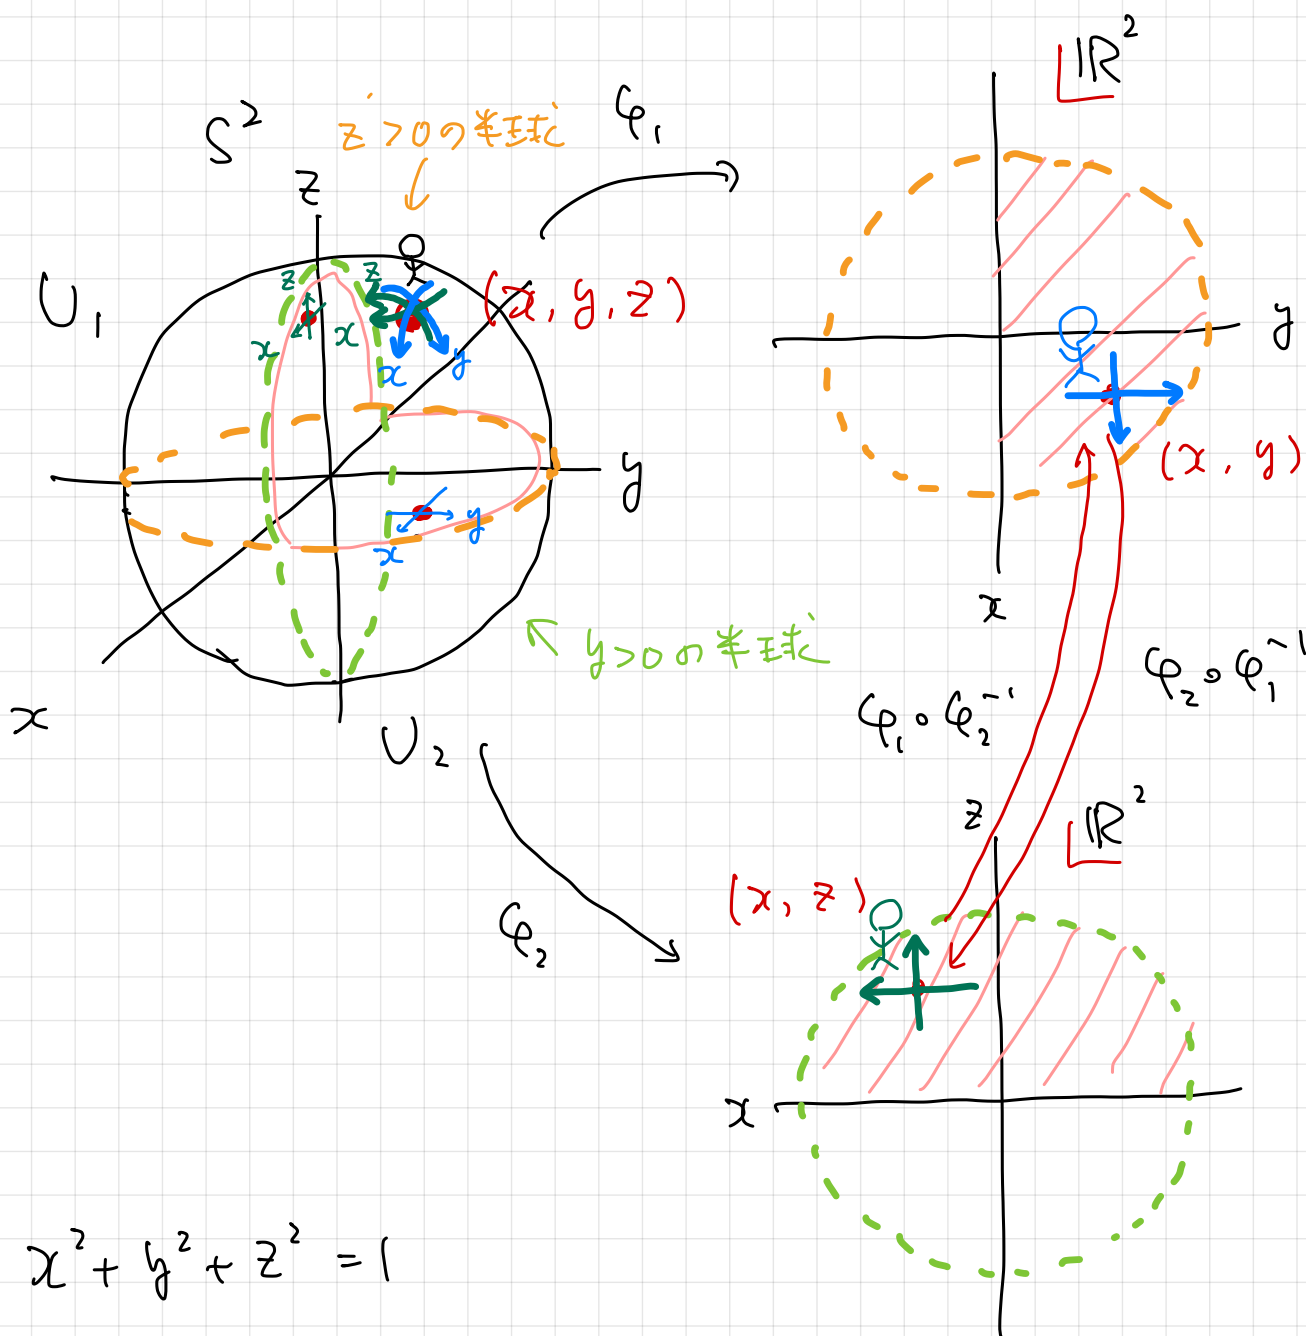 S²
z>0の半球
φ₁
ℝ²
z
U₁
z
z
(x, y, z)
x
x
x
y
y
y
x
y
(x, y)
x
y>0の半球
x
U₂
φ₁∘φ₂⁻¹
φ₂∘φ₁⁻¹
z
ℝ²
(x, z)
φ₂
x
x²+y²+z²=1